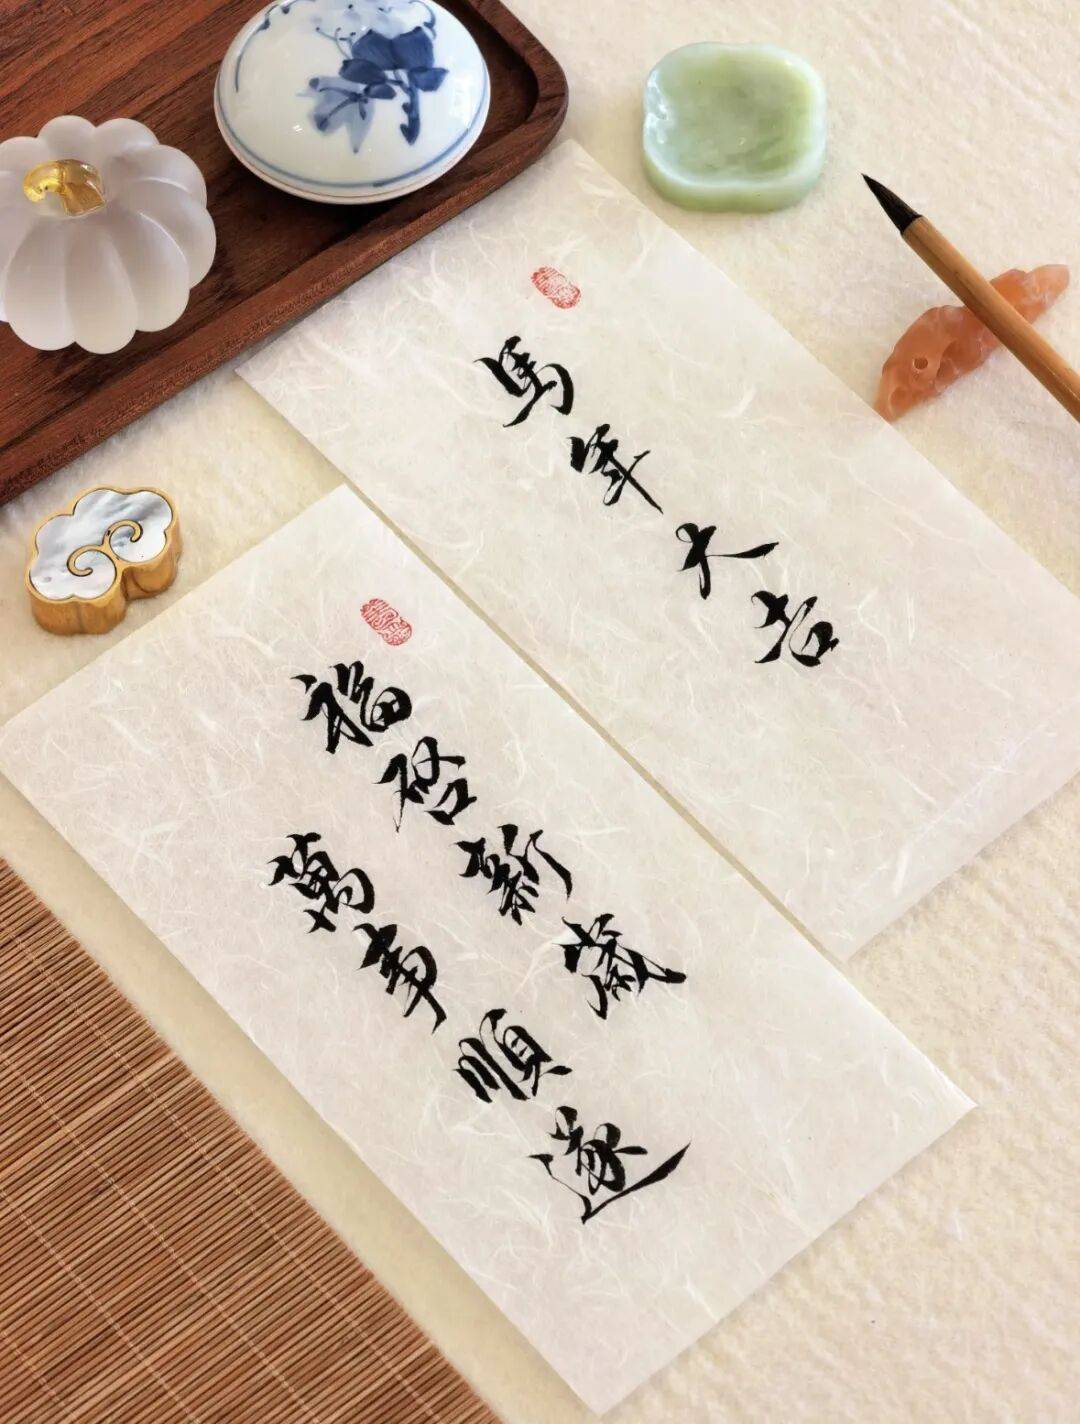 馬年大吉
福啓新歲
萬事順遂